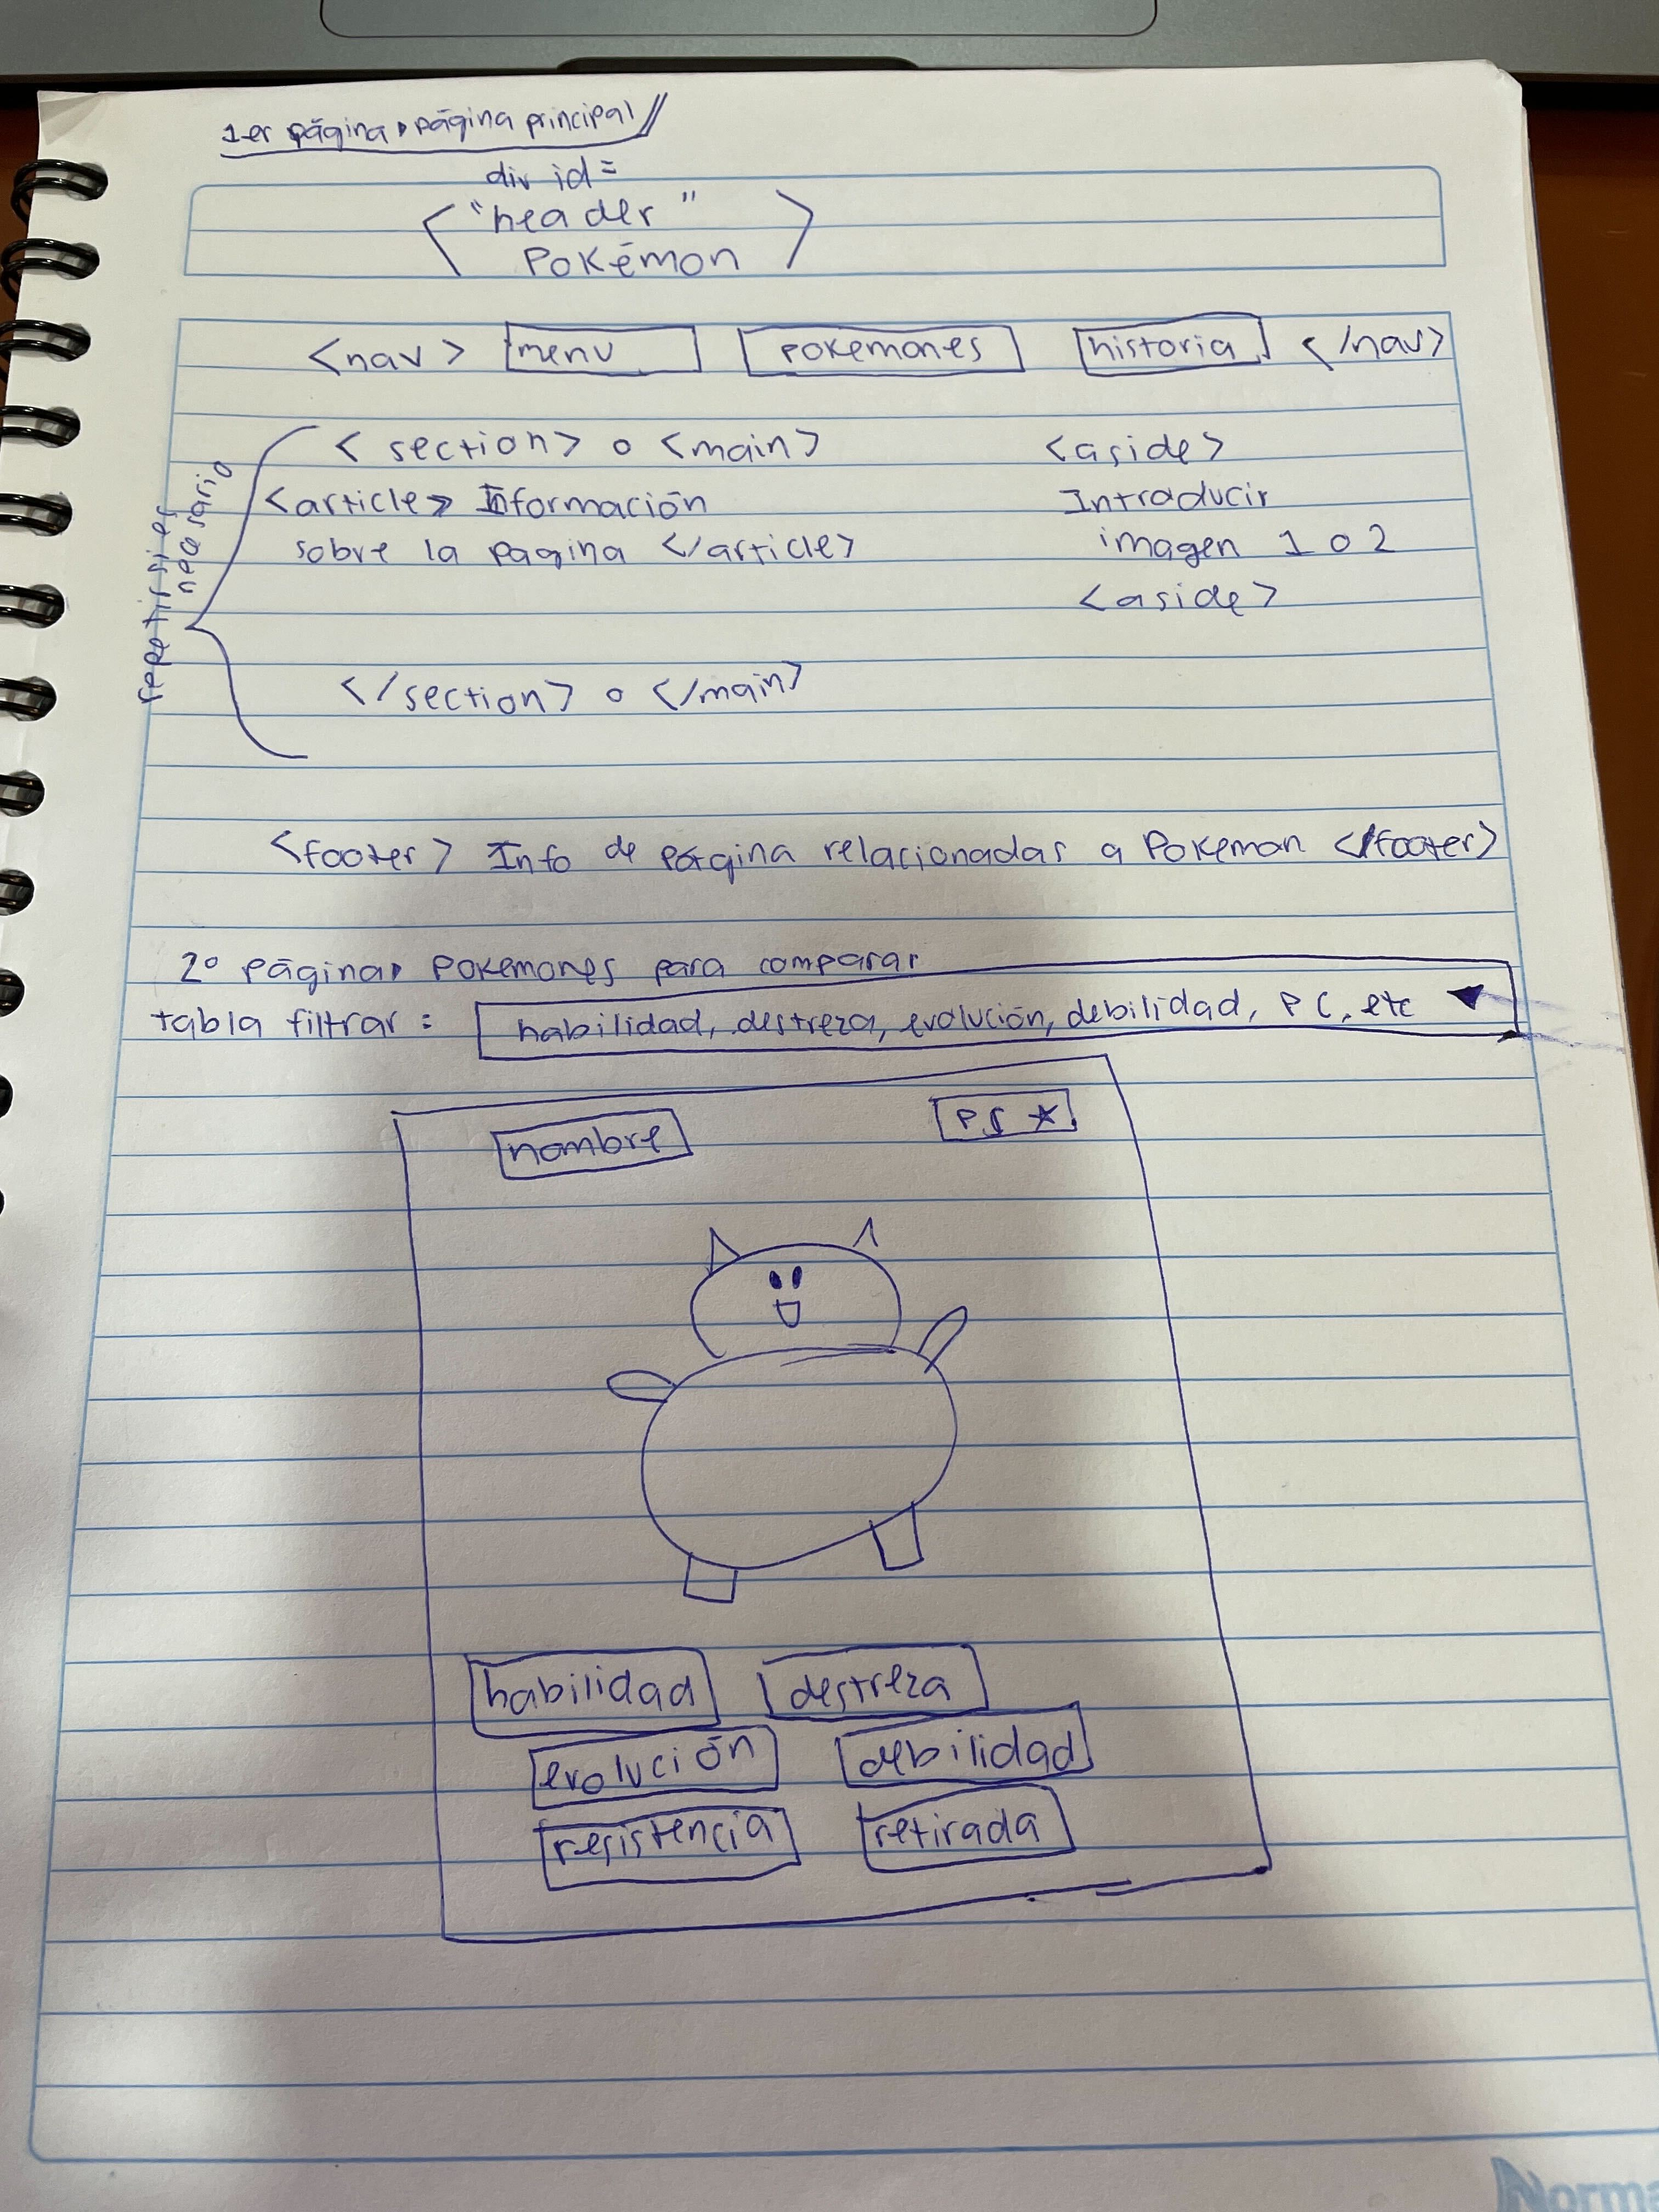 1er página página principal
div id=
< "header" >
Pokémon
<nav> menu pokemones historia </nav>
repetir si es
necesario
<section> o <main>
<article> Información
sobre la pagina </article>
</section> o </main>
<aside>
Introducir
imagen 1 o 2
<aside>
<footer> Info de página relacionadas a Pokemon </footer>
2º página Pokemones para comparar
tabla filtrar: habilidad, destreza, evolución, debilidad, PC, etc
nombre PS ★
habilidad destreza
evolución debilidad
resistencia retirada
Norma